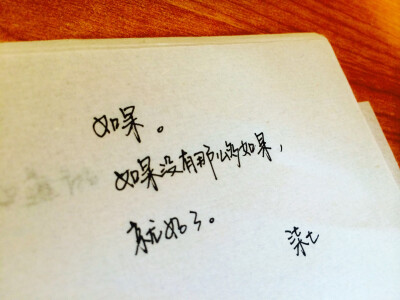 如果。
如果没有那么多如果,
就好了。
柒七